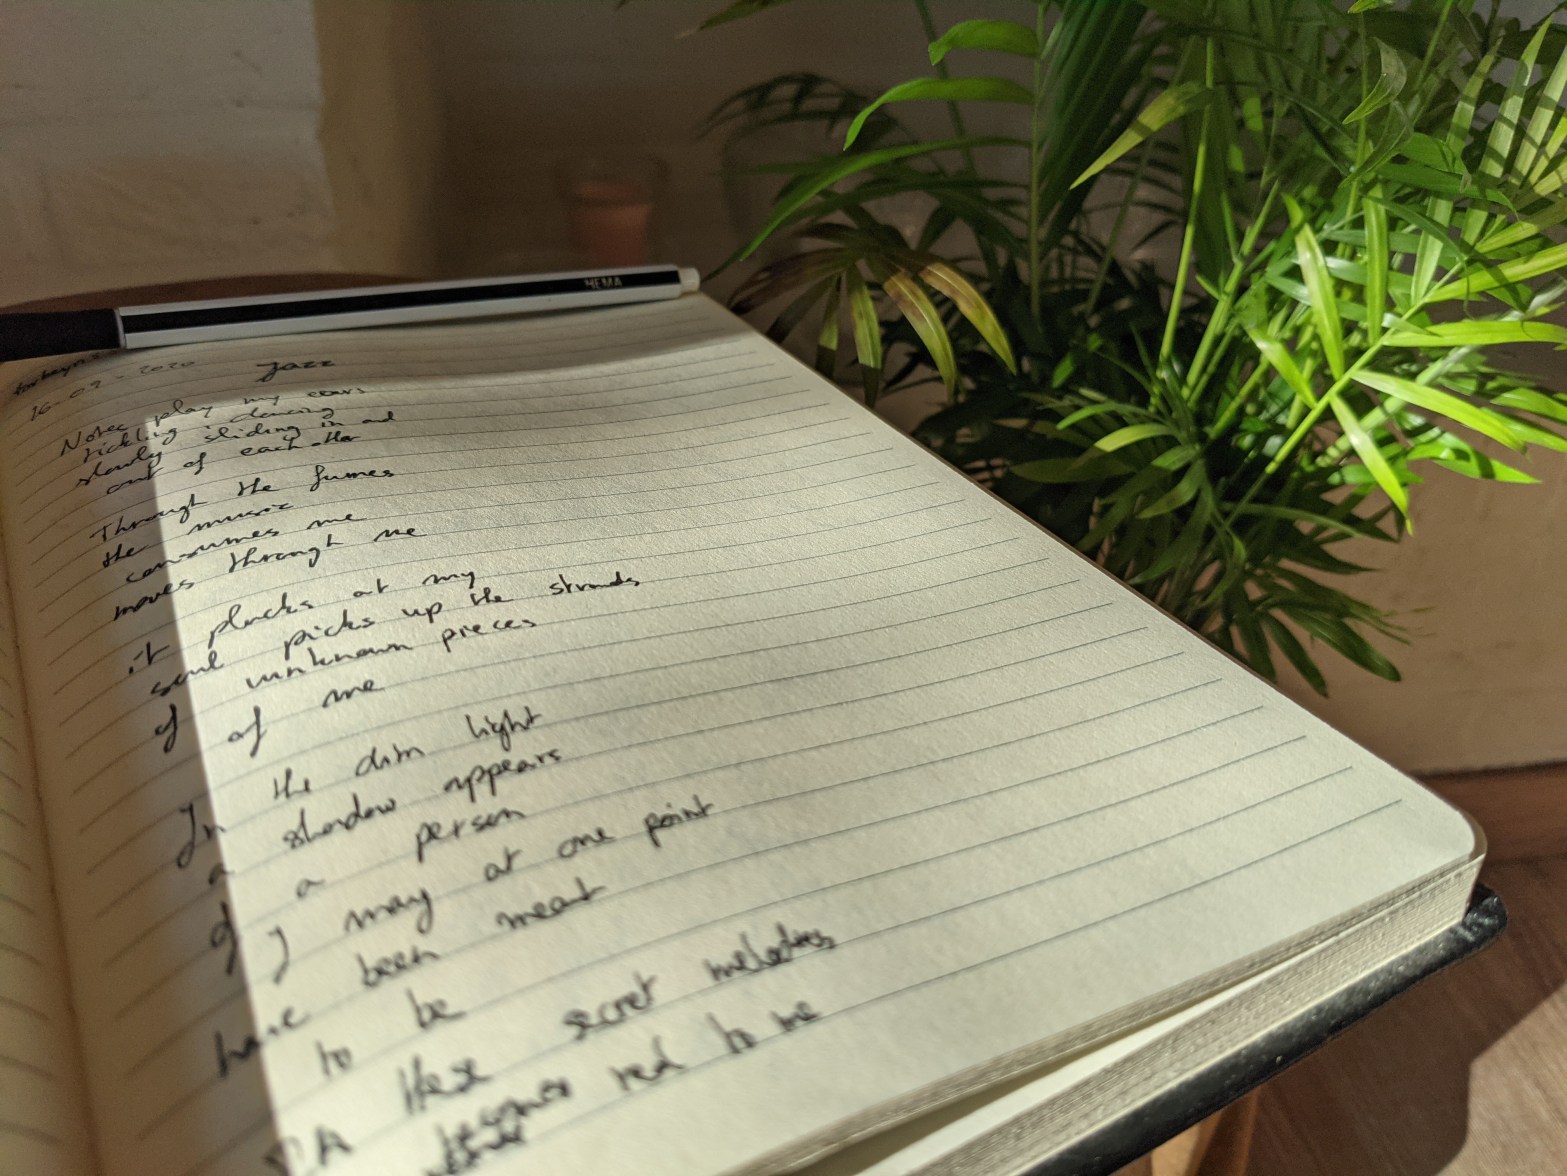 HEMA
Jazz
Notes play my ears
tickling dancing
slowly sliding in and
out of each other
Through the fumes
the music
consumes me
moves through me
it plucks at my
soul picks up the strands
of unknown pieces
of me
In the dim light
a shadow appears
of a person
I may at one point
have been meant
to be
these secret melodies
becomes to me